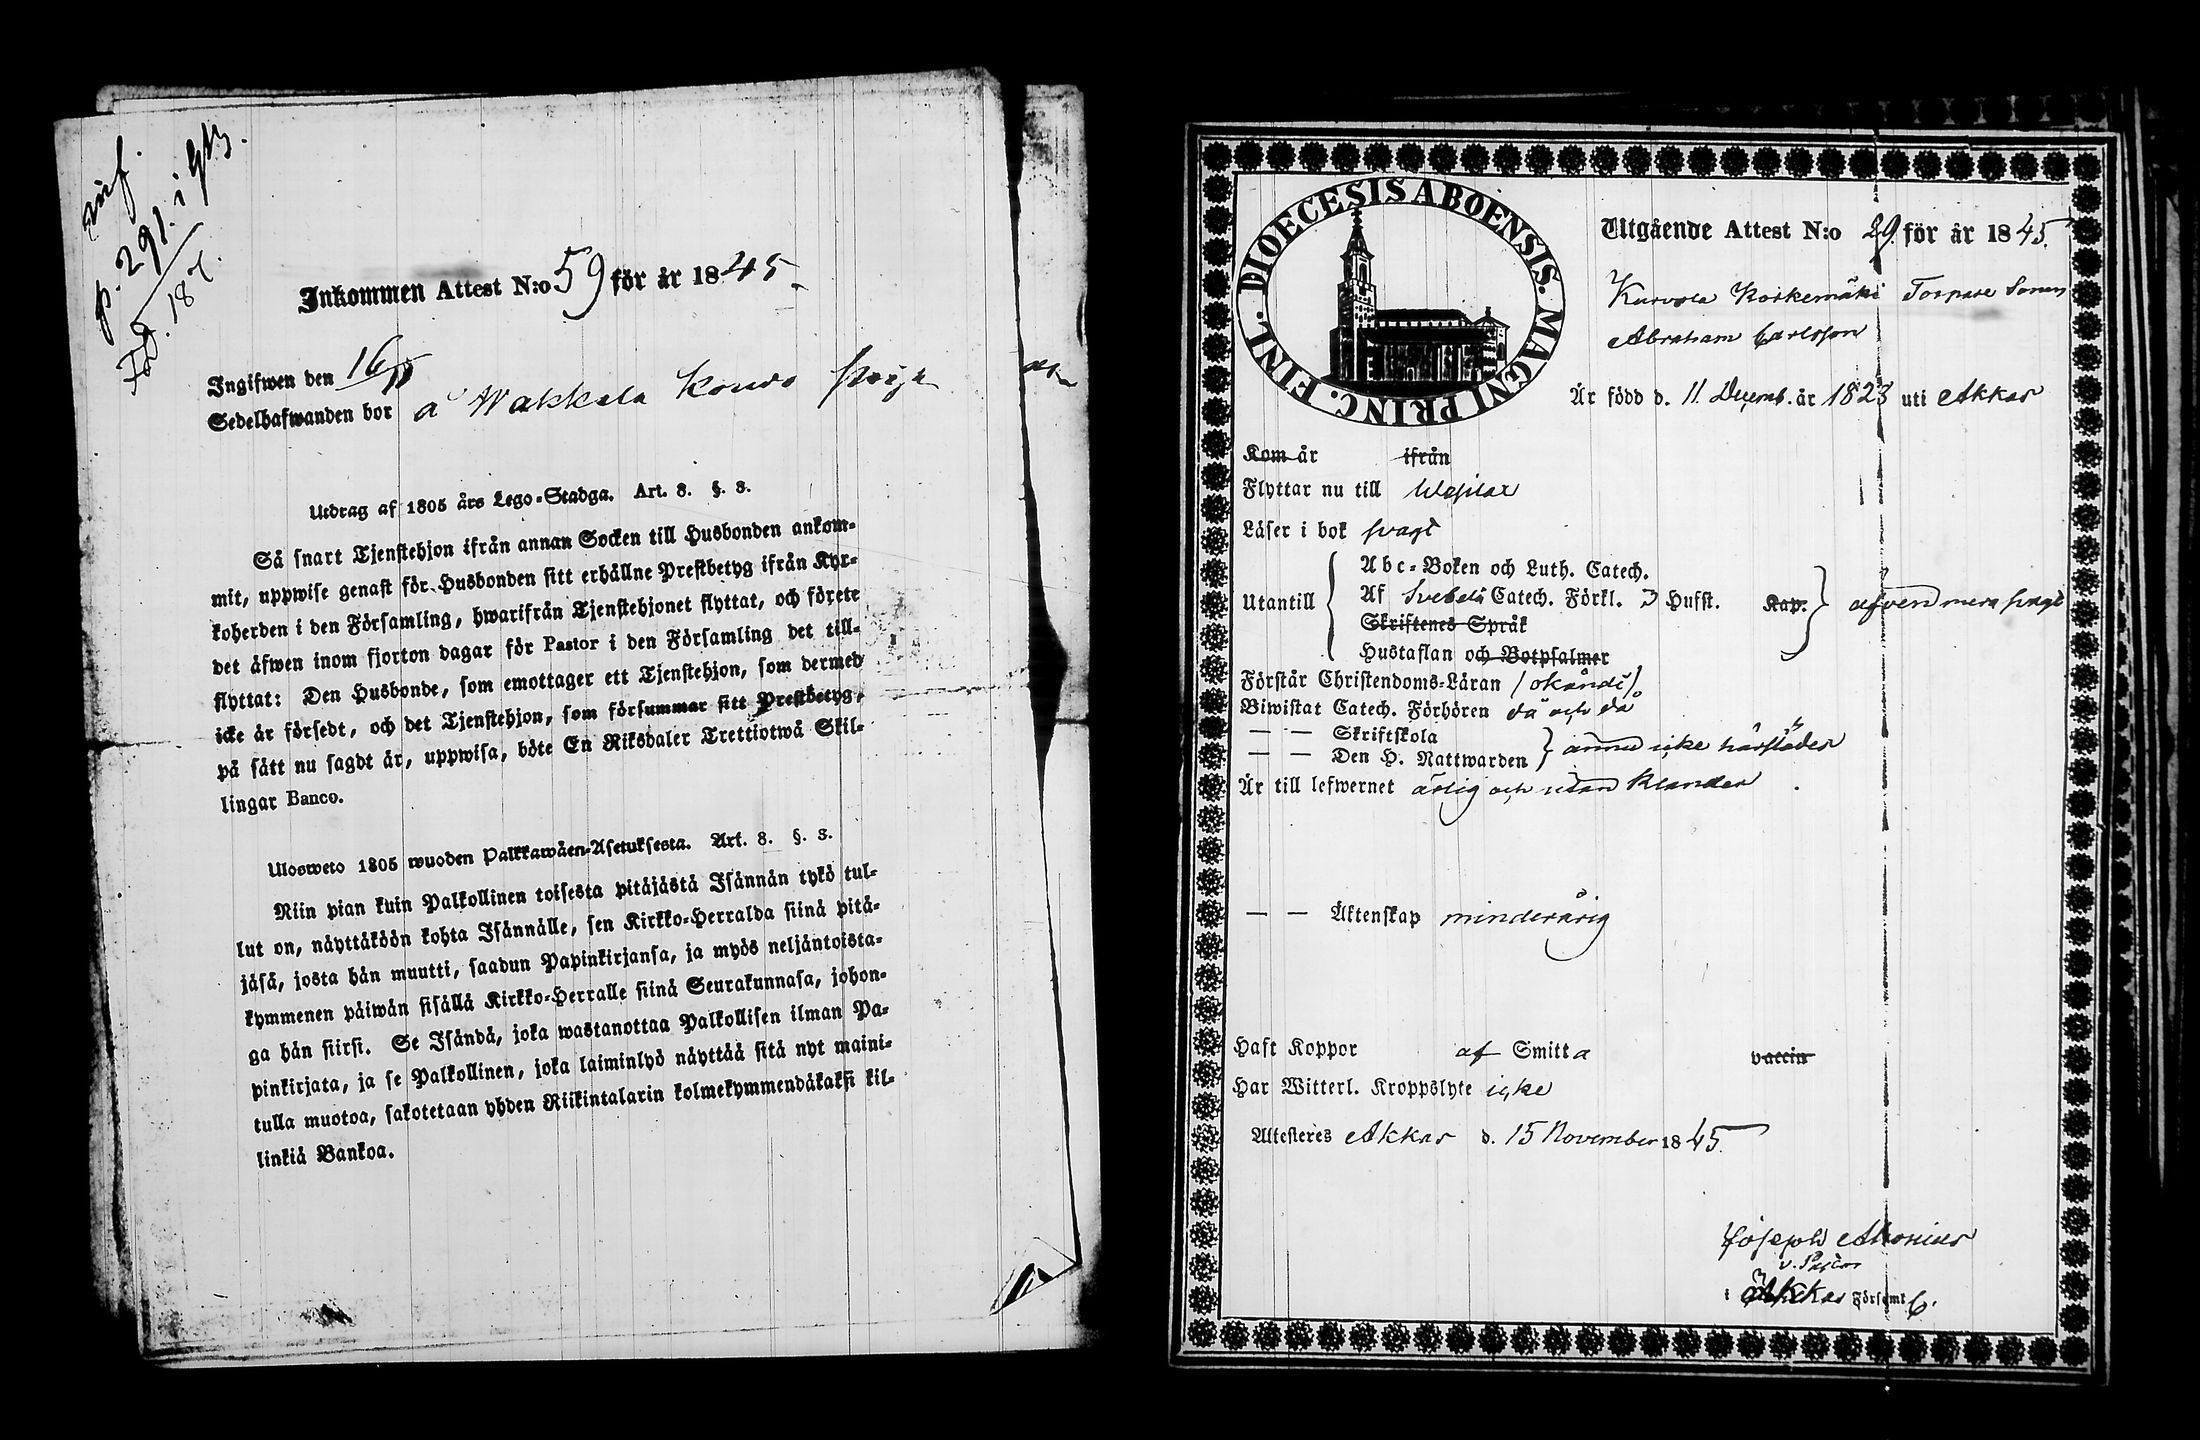 inf.
p. 291. i
Fol. 187.
Inkommen Attest N:o 59 för år 1845.
Ingifwen den 16/
Sedelhafwanden bor å Wakkala Kouvo
Utdrag af 1805 års Lego-Stadga. Art. 8. §. 3.
Så snart Tjenstehjon ifrån annan Socken till Husbonden ankom-
mit, uppwise genast för Husbonden sitt erhållne Prestbetyg ifrån Kyr-
koherden i den Församling, hwarifrån Tjenstehjonet flyttat, och förete
det äfwen inom fjorton dagar för Pastor i den Församling det till-
flyttat: Den Husbonde, som emottager ett Tjenstehjon, som dermed
icke är försedt, och det Tjenstehjon, som försummar sitt Prestbetyg,
på sätt nu sagdt är, uppwisa, böte En Riksdaler Trettiotwå Skil-
lingar Banco.
Ulosweto 1805 wuoden Palkkawäen-Asetuksesta. Art. 8. §. 3.
Niin pian kuin Palkollinen toisesta pitäjästä Isännän tykö tul-
lut on, näyttäköön kohta Isännälle, sen Kirkko-Herralda siinä pitä-
jäsä, josta hän muutti, saadun Papinkirjansa, ja myös neljäntoista-
kymmenen päiwän sisällä Kirkko-Herralle siinä Seurakunnasa, johon-
ga hän siirsi. Se Isändä, joka wastanottaa Palkollisen ilman Pa-
pinkirjata, ja se Palkollinen, joka laiminlyö näyttää sitä nyt maini-
tulla muotoa, sakotetaan yhden Riikintalarin kolmekymmendäkaksi kil-
linkiä Bankoa.
DIOECESIS ABOENSIS. MAGNI PRINC. FINL.
Utgående Attest N:o 29. för år 1845.
Kurvola Koskemäki Torpare Sonen
Abraham Carlsson
Är född d. 11 Decemb. år 1823 uti Akkas
Kom år ifrån
Flyttar nu till Wesilax
Läser i bok svagt
Abc-Boken och Luth. Catech.
Utantill Af Svebelii Catech. Förkl. 3 Hufst. Kap. afven mera svagt
Skriftenes Språk
Hustaflan och Botpsalmer
Förstår Christendoms-Läran /okändt/.
Biwistat Catech. Förhören då och då
— — Skriftskola
— — Den H. Nattwarden annu icke härstädes
Är till lefwernet ärlig och utan klander
— — Äktenskap minderårig
Haft Koppor af Smitta vaccin
Har Witterl. Kroppslyte icke
Attesteres Akkas d. 15 November 1845.
Joseph Alonius
v. Pastor
i Akkas Förśamlg.